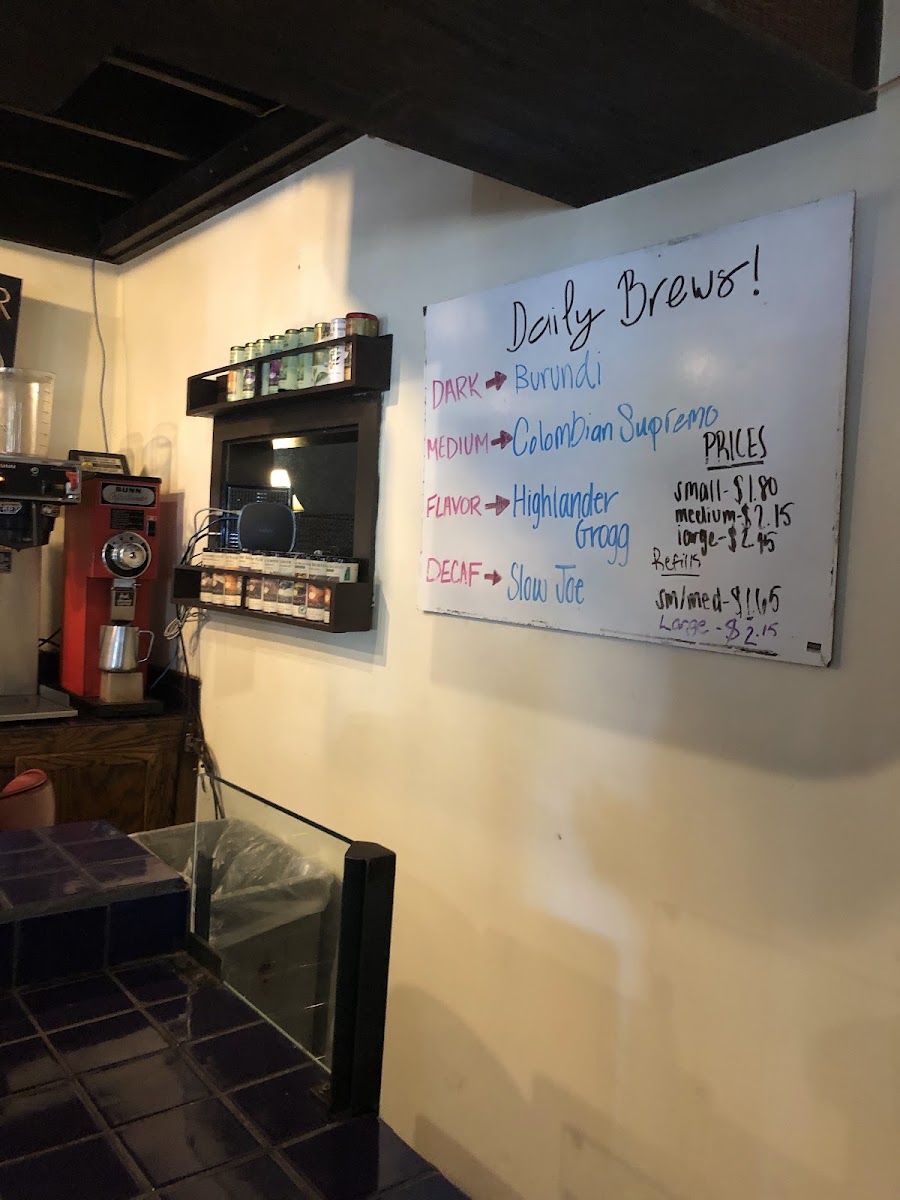 Daily Brews!
DARK → Burundi
MEDIUM → Colombian Supremo
FLAVOR → Highlander
Grogg
DECAF → Slow Joe
PRICES
small - $1.80
medium - $2.15
large - $2.45
Refills
sm/med - $1.65
Large - $2.15
R
BUNN